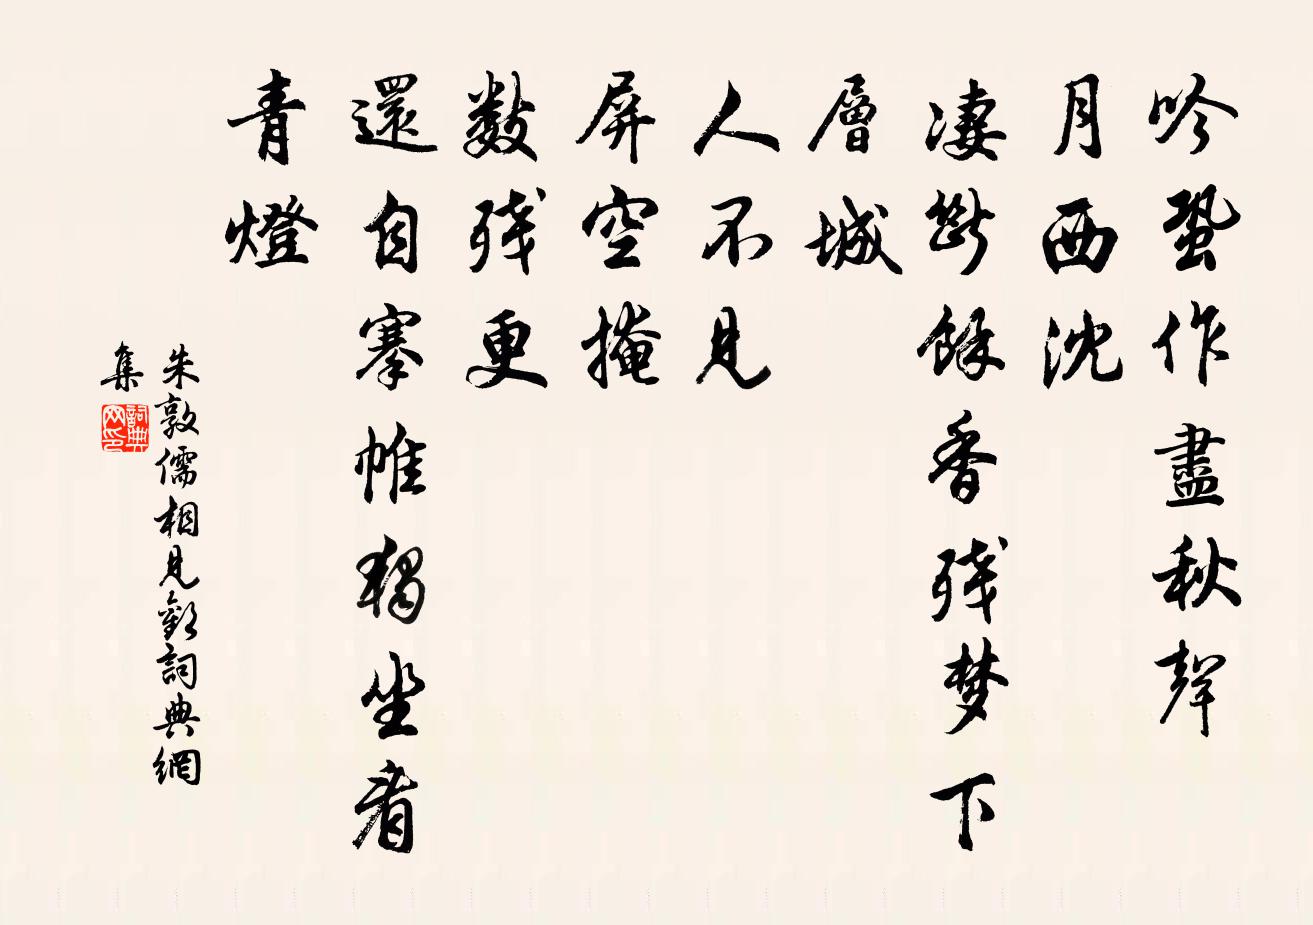 吟蛩作盡秋聲
月西沈
凄斷餘香残梦下
層城
人不見
屏空掩
數残更
還自搴帷獨坐看
青燈
朱敦儒相見歡詞典網
集
詞典网印